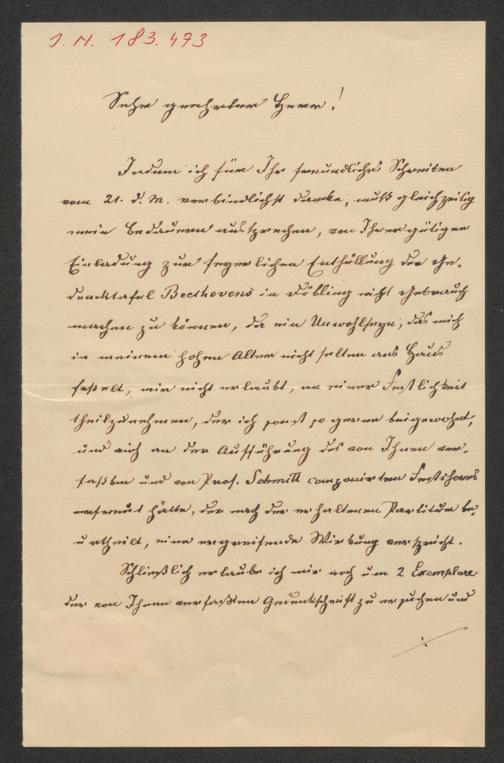 J. N. 183.473
Sehr geehrter Herr!
Indem ich für Ihr freundliches Schreiben
vom 21. d. M. verbindlichst danke, muß gleichzeitig
mein Bedauern aussprechen, von Ihrer gütigen
Einladung zur feyerlichen Enthüllung der Ge-
denktafel Beethovens in Döbling nicht Gebrauch
machen zu können, da ein Unwohlseyn, das mich
in meinem hohen Alter nicht selten ans Haus
fesselt, mir nicht erlaubt, an einer Festlichkeit
theilzunehmen, der ich sonst so gerne beigewohnt,
und mich an der Aufführung des von Ihnen ver-
faßten und von Prof. Schmitt componirten Festchores
erfreut hätte, der nach der erhaltenen Partitur be-
urtheilt, eine ergreifende Wirkung verspricht.
Schließlich erlaube ich mir noch um 2 Exemplare
der von Ihnen verfaßten Gedenkschrift zu ersuchen und
./.